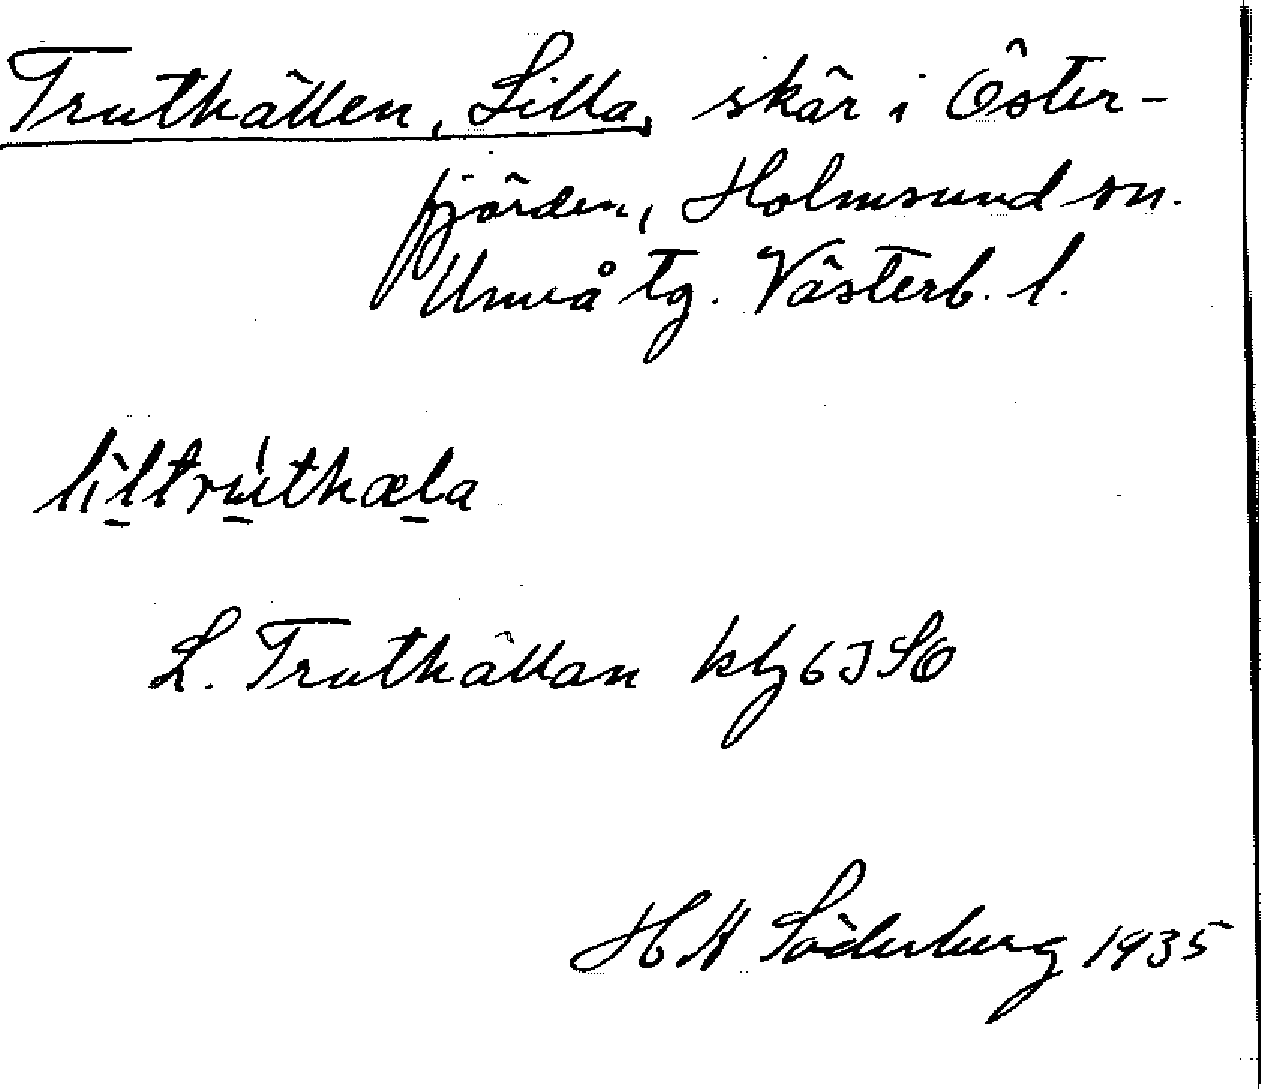 Truthällen, Lilla, skär i Öster-
fjärden, Holmsund sn.
Umeå tg. Västerb. l.
lìltrúthæla
L. Truthällan kbl 63 SO
H M Söderberg 1935